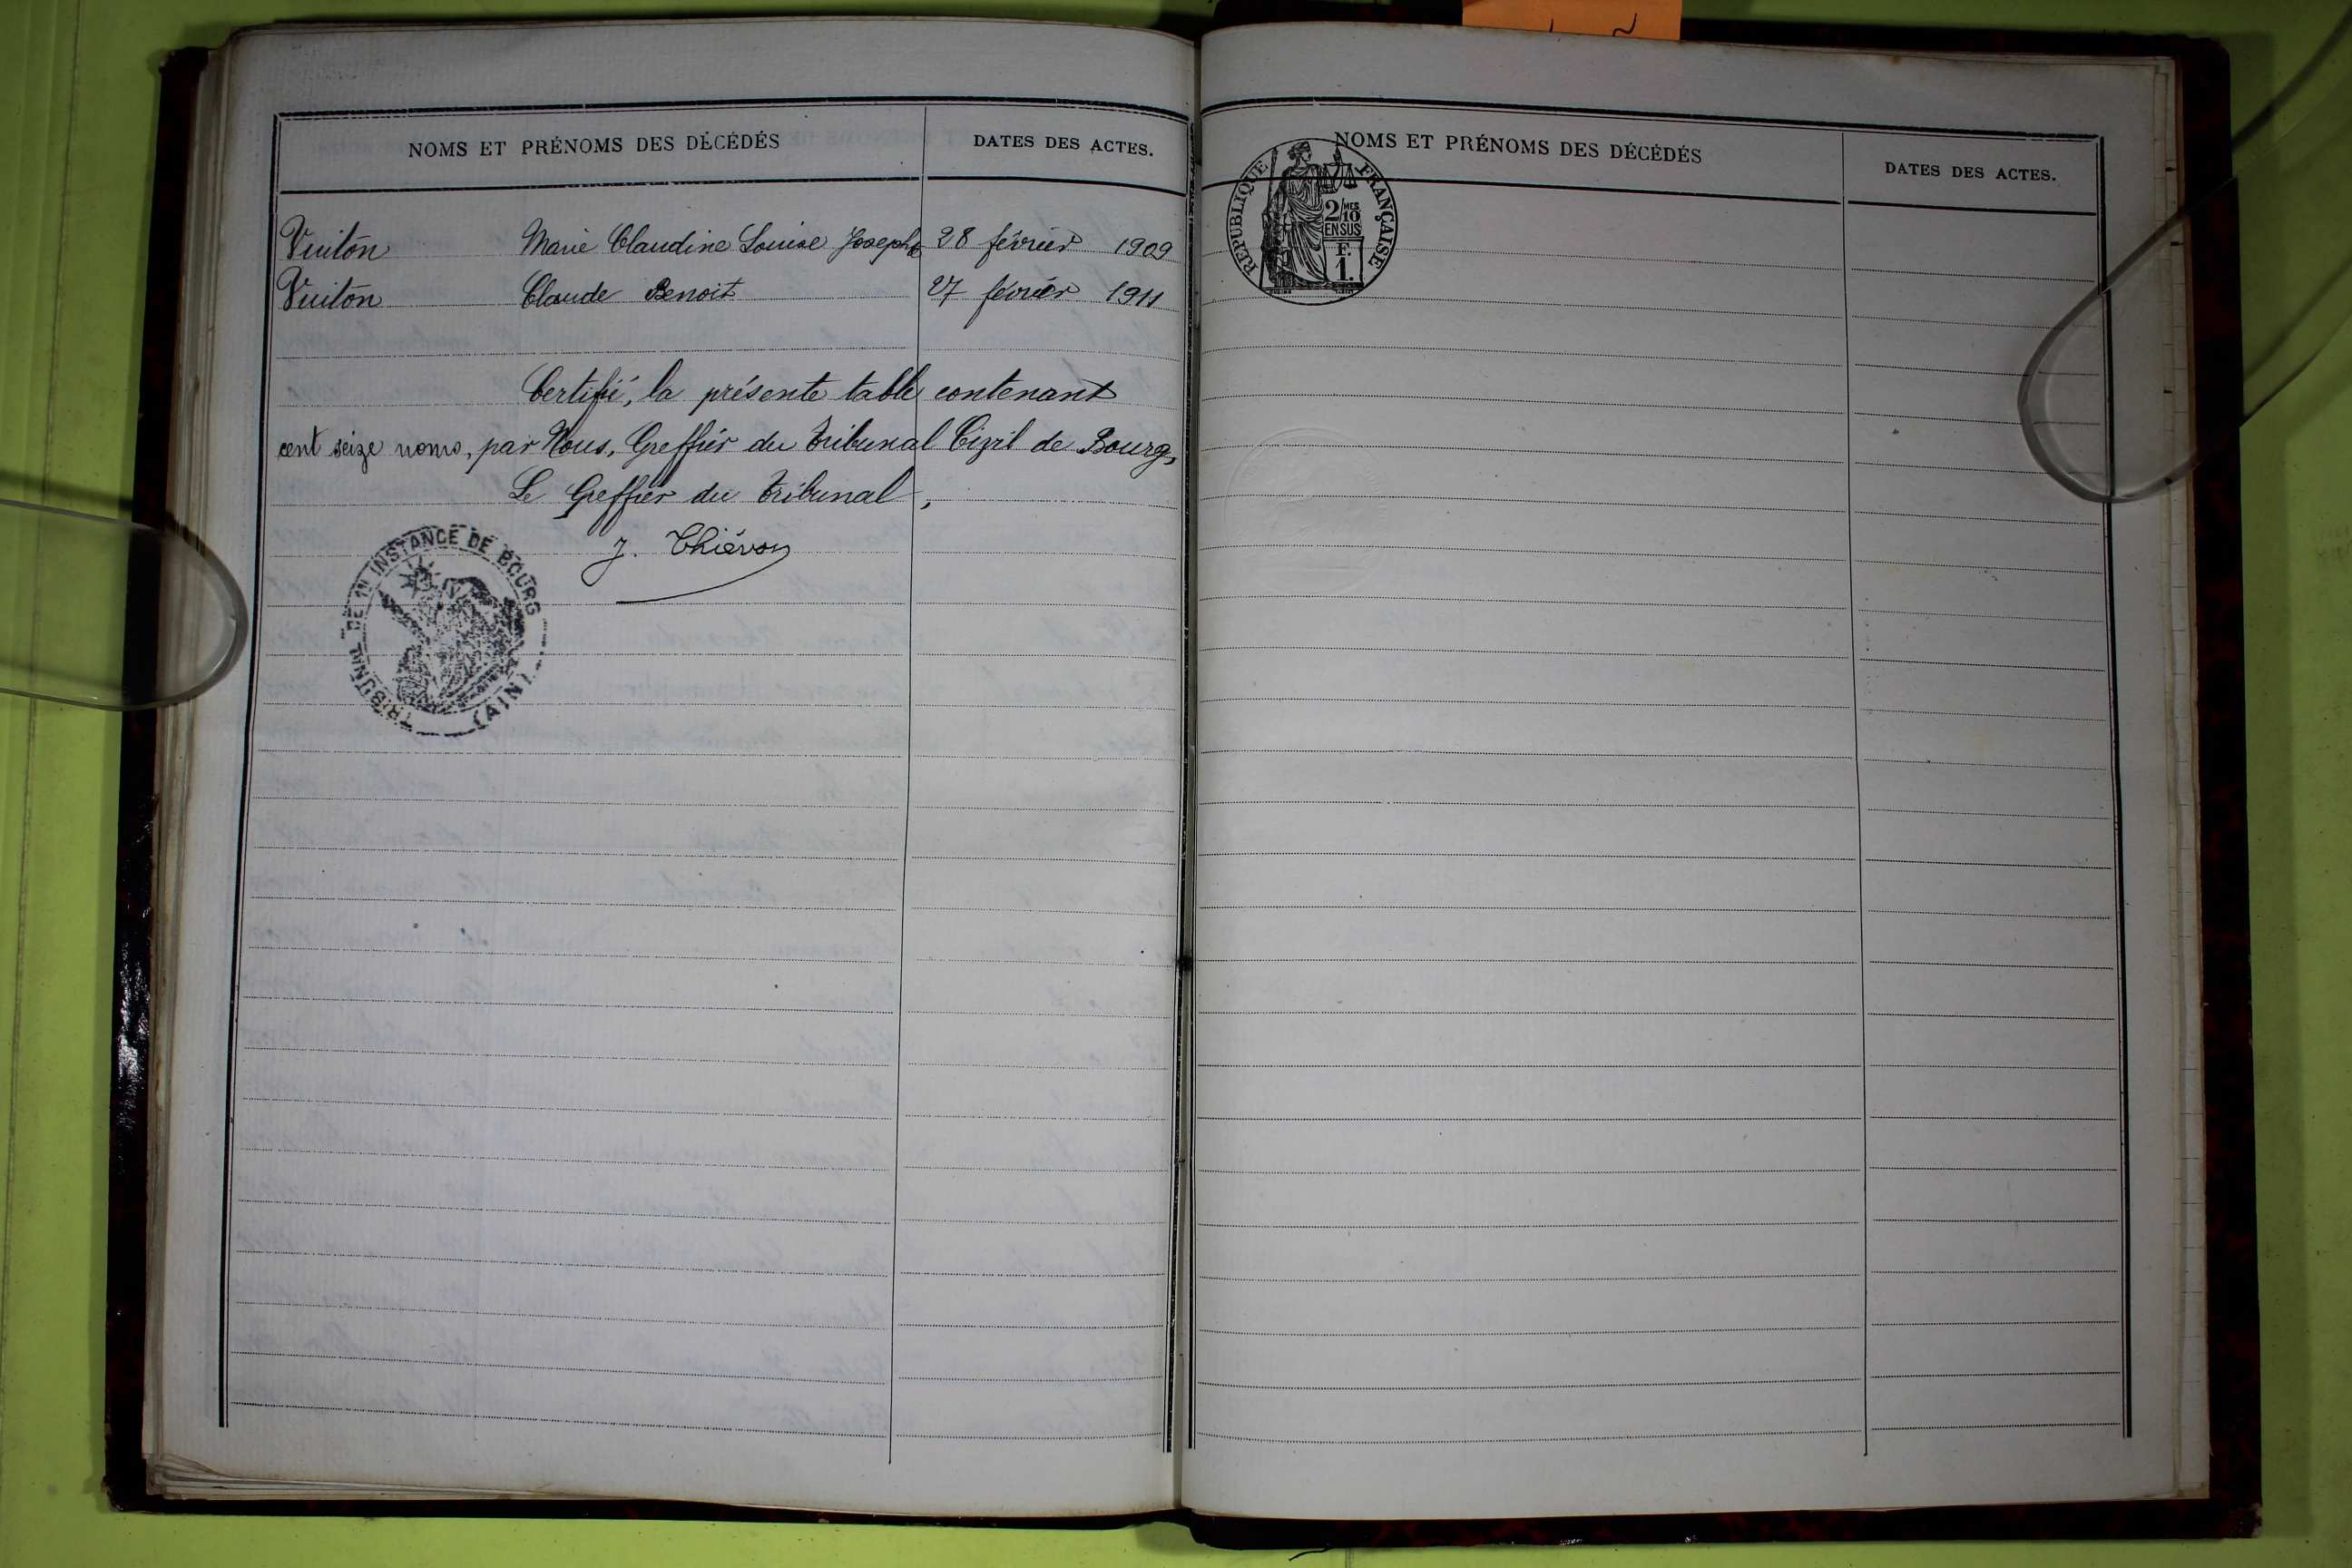 NOMS ET PRÉNOMS DES DÉCÉDÉS DATES DES ACTES.
Vuiton Marie Claudine Louise Josephe 28 février 1909
Vuiton Claude Benoit 27 février 1911
Certifié, la présente table contenant
cent seize noms, par Nous, Greffier du Tribunal Civil de Bourg,
Le Greffier du Tribunal,
J. Thiévon
TRIBUNAL DE 1re INSTANCE DE BOURG
(AIN)
NOMS ET PRÉNOMS DES DÉCÉDÉS DATES DES ACTES.
RÉPUBLIQUE FRANÇAISE
2/MES
10
EN SUS
F.
1.